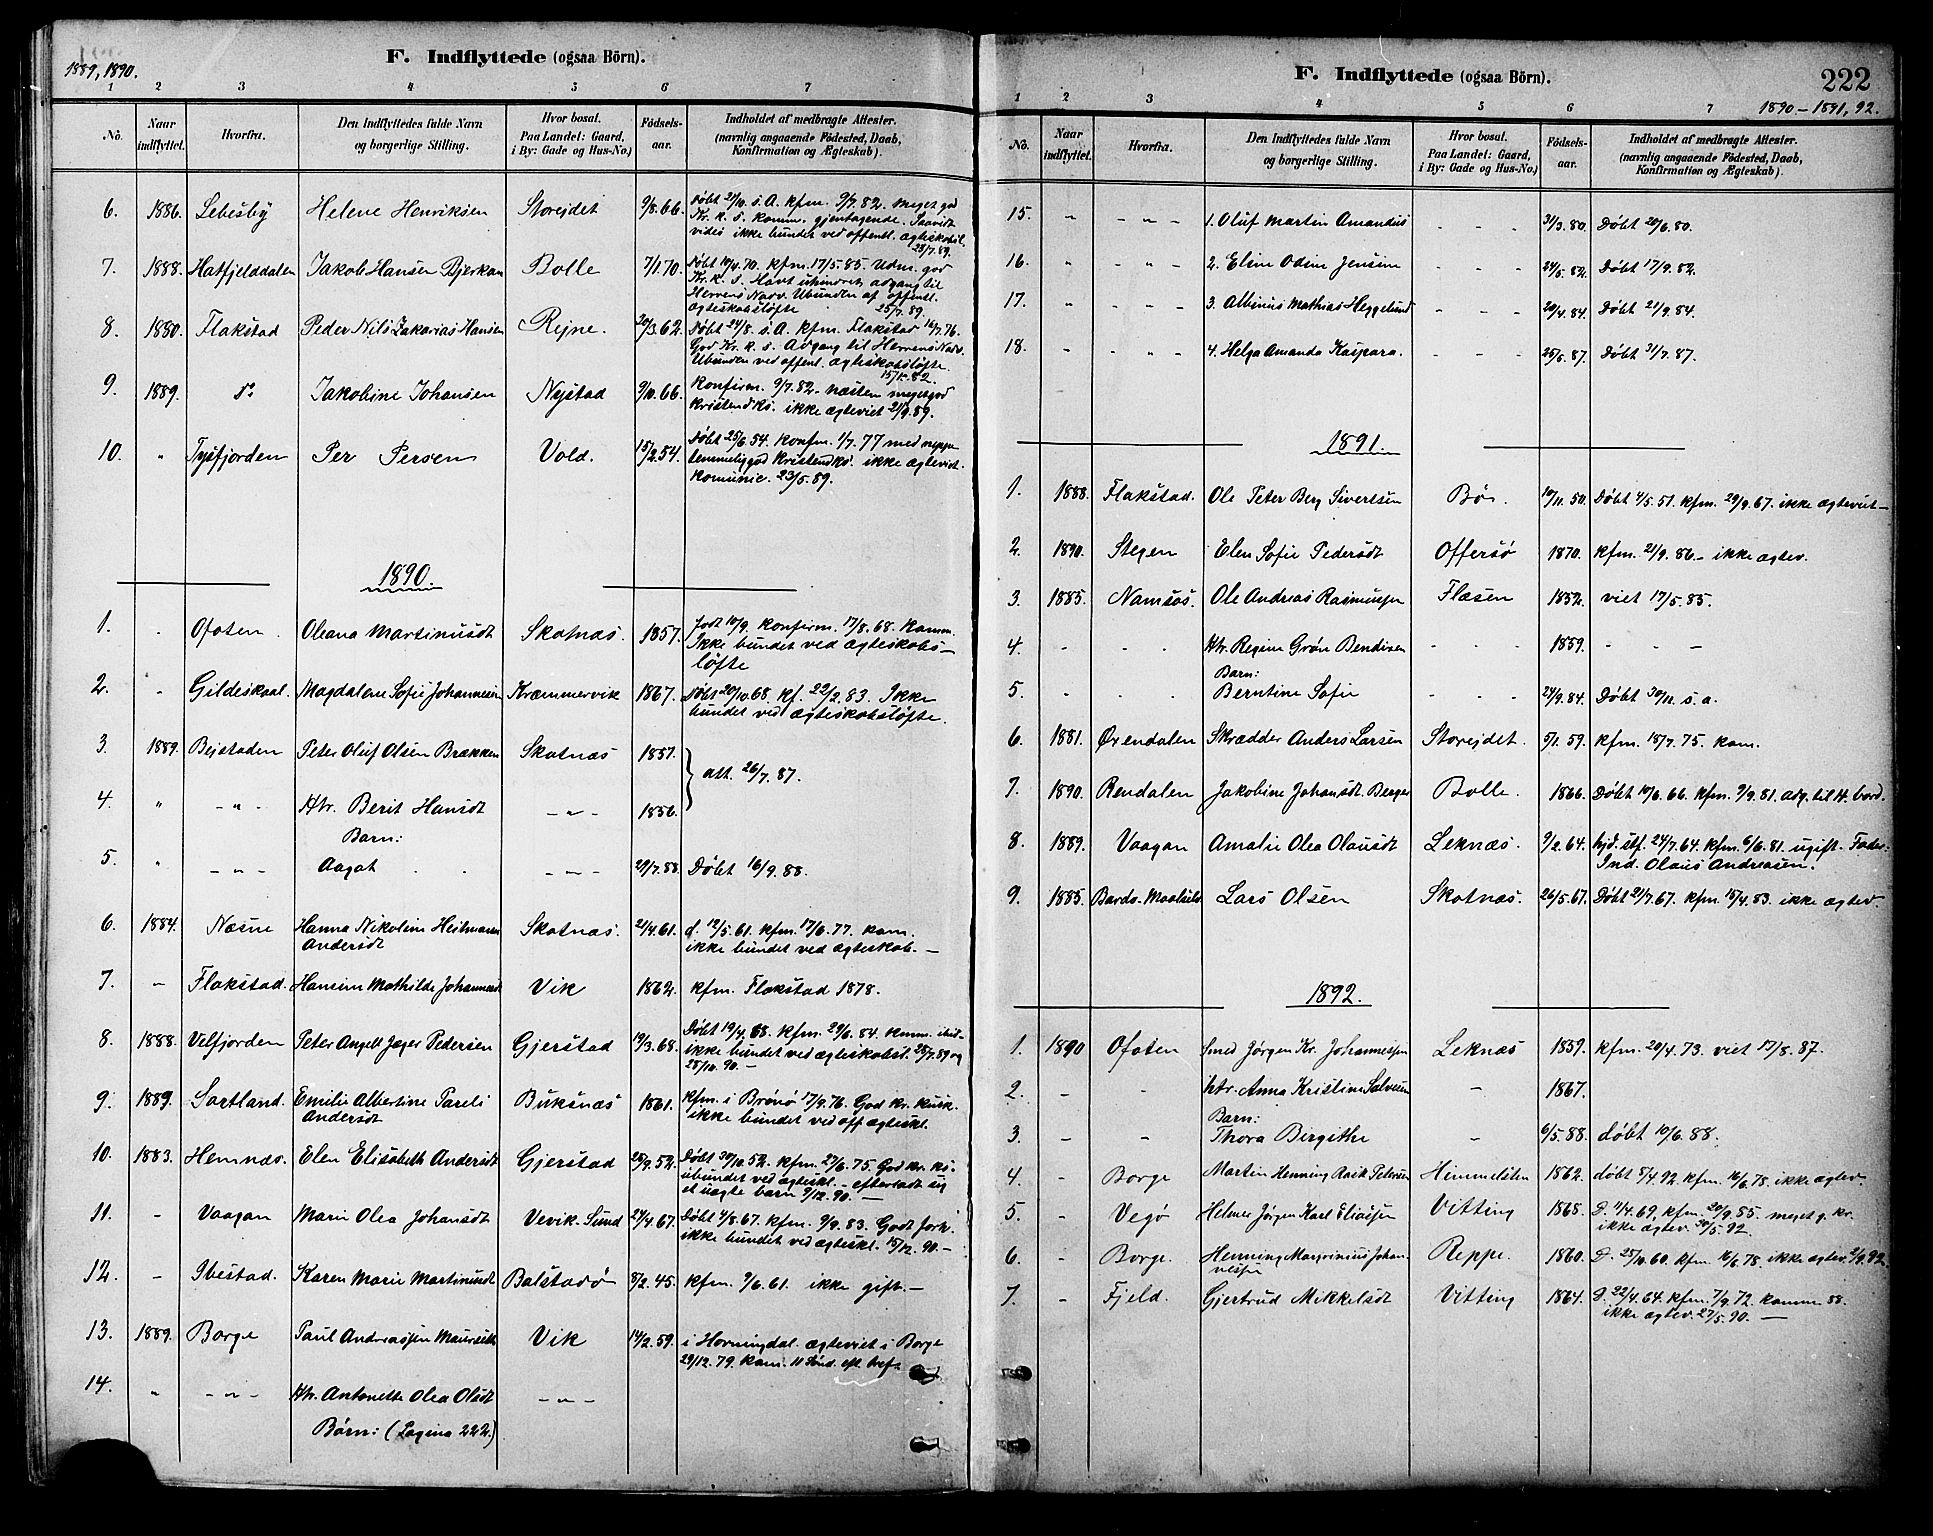 1889, 1890.
F. Indflyttede (ogsaa Börn).
1 2 3 4 5 6 7
No. Naar indflyttet. Hvorfra. Den Indflyttedes fulde Navn og borgerlige Stilling. Hvor bosat. Paa Landet: Gaard, i By: Gade og Hus-No. Födsels-aar. Indholdet af medbragte Attester. (navnlig angaaende Födested, Daab, Konfirmation og Ægteskab).
6. 1886. Lebesby Helene Henriksen Storejdet 9/8.66. Døbt 21/10. s. A. kfm. 9/7.82. Meget god
Kr. k. s. komm. gjentagende. Saavidt
vides ikke bundet ved offentl. ægteskabsl.
23/7.89.
7. 1888. Hatfjelddalen Jakob Hansen Bjerkan Bolle 7/1.70. Døbt 10/4.70. kfm. 17/5.85. Udm. god
Kr. k. s. Havt uhindret adgang til
Herrens Nadv. Ubunden af offentl.
ægteskabsløfte 25/7.89.
8. 1880. Flakstad Peder Nils Zakarias Hansen Rejne. 20/3.62. Døbt 24/8. s. A. kfm. Flakstad 16/7.76.
God Kr. k. s. Adgang til Herrens Nadv.
Ubunden ved offent. ægteskabsløfte.
9. 1889. do Jakobine Johansen Nystad 9/10.66. Konfirm. 9/7.82. næsten megetgod
kristendks. ikke ægteviet 2/9.89.
10. " Tysfjorden Per Persen Vold. 15/2.54. Døbt 25/6.54. Konfm. 1/7.77 med neppe
temmeliggod kristendks. ikke ægteviet.
komunic. 23/5.89.
1890.
1. . Ofoten. Oleana Martinusdt Skotnæs. 1857. Født 10/9. konfirm. 17/8.68. komm.
Ikke bundet ved ægteskabs-
løfte
2. " Gildeskaal. Magdalene Sofie Johannesen Kræmmervik 1867. Døbt 20/10.68. kf. 22/2.83. Ikke
bundet ved ægteskabsløfte.
3. 1889. Bejstaden Peter Oluf Olsen Brækken Skotnæs 1857. att. 26/7.87.
4. " - " - Htr. Berit Hansdt - " - 1856.
Barn:
5. " - " - Aagot - " - 29/7.88. Døbt 16/9.88.
6. 1884. Næsne Hanna Nikoline Heitmann Skotnæs. 21/4.61. d. 12/5.61. kfm. 17/6.77. kom.
Andersdt ikke bundet ved ægteskab. -
7. - Flakstad. Hansine Mathilde Johannesdt Vik 1862. kfm. Flakstad 1878.
8. 1888. Velfjorden Peter Angell Jæger Pedersen Gjerstad 19/3.68. Døbt 19/4.68. kfm. 29/6.84. komm. ibid-
ikke bundet ved ægteskabsl. 28/7.89 og
25/10.90. -
9. 1889. Sortland. Emilie Albertine Pareli Buksnæs 1861. kfm. i Brønø 17/9.76. God kr. kusk.
Andersdt ikke bundet ved off ægteskl.
10. 1883. Hemnæs. Elen Elisabeth Andersdt Gjerstad 28/9.52. Døbt 30/10.52. kfm. 27/6.75. God kr. ks.
ubundet ved ægteskl. - efterladt sig
et uægte barn 9/12.90. -
11. - Vaagan Marie Olea Johansdt Vevik. Sund 27/4.67. Døbt 4/8.67. kfm. 9/9.83. Godt
ikke bundet ved ægteskl. 15/12.90. -
12. - Ibestad. Karen Marie Martinusdt Balstadø 8/2.45. kfm. 9/6.61. ikke gift. -
13. 1889. Borge Paul Andreassen Vik 14/2.59. i Horningdal. ægteviet i Borge
29/12.79. kom. 11 Sønd. eft. tref.
14. " - " - Htr. Antonette Olea Olsdt - " -
Børn: (Pagina 222.)
F. Indflyttede (ogsaa Börn).
222
1890 - 1891, 92.
1 2 3 4 5 6 7
No. Naar indflyttet. Hvorfra. Den Indflyttedes fulde Navn og borgerlige Stilling. Hvor bosat. Paa Landet: Gaard, i By: Gade og Hus-No.) Födsels-aar. Indholdet af medbragte Attester. (navnlig angaaende Födested, Daab, Konfirmation og Ægteskab).
15. " - " - 1. Oluf Martin Amandus - - - 31/3.80. Døbt 20/6.80.
16. " - " - 2. Eline Odine Jensine - - - 24/5.82. Døbt 17/9.82.
17. " - " - 3. Albinus Mathias Heggelund - - - 20/4.84. Døbt 21/9.84.
18. - - " - 4. Helga Amanda Kaspara. - - - 25/5.87. Døbt 31/7.87.
1891.
1. 1888. Flakstad. Ole Peter Berg Sivertsen Bø. 10/11.50. Døbt 4/5.51. kfm. 29/9.67. ikke ægteviet -
2. 1890. Stegen Elen Sofie Pedersdt Offersø 1870. kfm. 21/9.86. - ikke ægtev.
3. 1885. Namsos. Ole Andreas Rasmussen Flæsen 1852. viet 17/5.85.
4. - - - Htr. Regine Grøn Bendixen - - - 1859. - - -
Barn:
5. - - - Berntine Sofie - - - 24/9.84. Døbt 30/11. s. a.
6. 1881. Øxendalen Skrædder Anders Larsen Storejdet. 5/1.59. kfm. 18/7.75. kom.
7. 1890. Rendalen Jakobine Johansdt Berger Bolle. 1866. Døbt 10/6.66. kfm. 9/9.81. adg. til H. bord.
8. 1889. Vaagan Amalie Olea Olausdt Leknæs. 9/2.64. hjd. stf. 24/7.64. kfm. 6/6.81. ugift. Fader.
Ind. Olaus Andreasen.
9. 1885. Bardo-Maalselv Lars Olsen Skotnæs. 26/5.67. Døbt 21/7.67. kfm. 15/4.83. ikke ægtev.
1892.
1. 1890 Ofoten Smed Jørgen Kr. Johannessen Leknæs 1859. kfm. 20/4.73. viet 17/8.87.
2. - - htr. Anna Kristine Salvesen - 1867.
Barn:
3. - - Thora Birgithe - 6/5.88. døbt 10/6.88.
4. - Borge Martin Henning Petersen Himmelsten 1862. døbt 8/4.92. kfm. 16/6.78. ikke ægtev.
5. - Vegø Helmer Jørgen Karl Eliassen Vitting 1868. D. 11/4.69. kfm. 20/9.85. meget g. kr.
ikke ægtev. 30/5.92.
6. - Borge. Henning Johan- Reppe. 1860. D. 25/10.60. kfm. 16/6.78. ikke ægtev. 2/9.92.
nessen
7. - Fjeld. Gjertrud Mikkelsdt Vitting 1864. D. 22/4.64. kfm. 7/9.72. komm 88.
ikke ægtev. 27/5.90. -